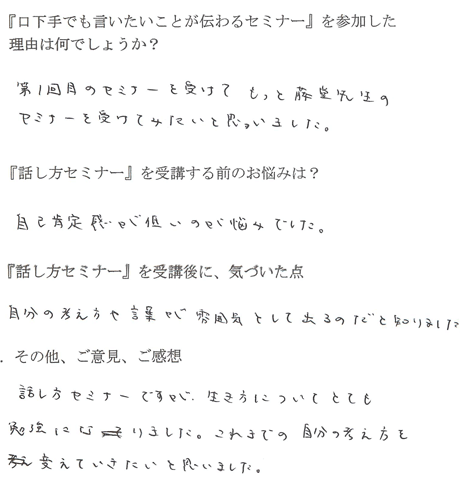 『口下手でも言いたいことが伝わるセミナー』を参加した
理由は何でしょうか？
第1回目のセミナーを受けて もっと藤堂先生の
セミナーを受けてみたいと思いました。
『話し方セミナー』を受講する前のお悩みは？
自己肯定感が低いのが悩みでした。
『話し方セミナー』を受講後に、気づいた点
自分の考え方や言葉が雰囲気として出るのだと知りました
．その他、ご意見、ご感想
話し方セミナーですが、生き方についてとても
勉強になりました。これまでの自分の考え方を
変えていきたいと思いました。